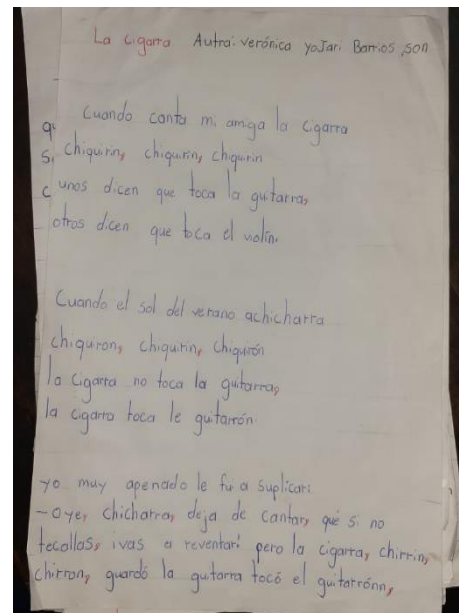 La cigarra Autra: verónica yojari Barrios son
Cuando canta mi amiga la cigarra
chiquirin, chiquirin, chiquirin
unos dicen que toca la guitarra,
otros dicen que toca el violin.
Cuando el sol del verano achicharra
chiquiron, chiquirin, chiquirón
la cigarra no toca la guitarra,
la cigarra toca le guitarrón
yo muy apenado le fui a suplicari
- oye, chicharra, deja de cantar, que si no
tecallas, ivas a reventar! pero la cigarra, chirrin,
chirron, guardó la guitarra tocó el guitarrónn,